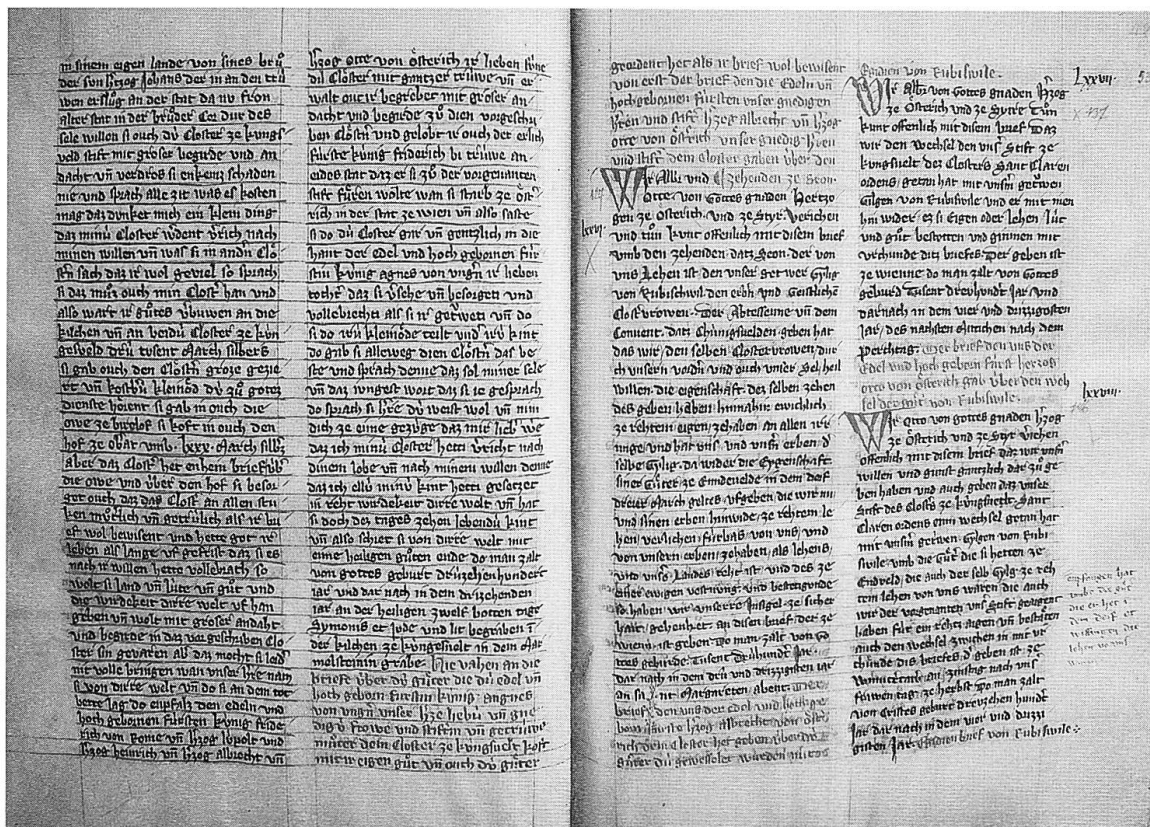 in sinem eigen lande von sines brů
der sun h̉zog Johans der in an den trů
wen erslůg an der stat da nv̇ fron
alter stat in der brůder Cor dur des
sele willen si ouch dv̇ Closter ze kv̇ngs
veld stift mit groser begirde vnd an
dacht vn̄ verdros si enkein schaden
nie vnd sprach alle zit was es kosten
mag daz dunket mich ein klein ding
daz minv̇ Closter w̉dent v̉rich nach
minen willen vn̄ was si in and̉n Clo
st̉n sach daz ir wol geviel so sprach
si daz můs ouch min Clost̉ han vnd
also wart ir gůtes v̉buwen an die
kilchen vn̄ an beidv̇ Closter ze kv̇n
gesveld drv̇ tusent March silbers
si gab ouch den Clost̉n groze gezie
rt vn̄ kostbv̇ kleinod dv̇ zů gotez
dienste hörent si gab in ouch die
owe ze birolof si koft in ouch den
hof ze ob̉ar vmb . lxxx . March silb̉z
aber daz Clost̉ het enhein brief v̇b̉
die owe vnd v̇ber den hof si besor
get ouch daz das Clost̉ an allen stu
ken můrlich vn̄ getrv̇lich als ir bri
ef wol bewisent vnd hette got ir
leben als lange vf gefrist daz si es
nach ir willen hette vollebracht so
wolt si land vn̄ lv̇te vn̄ gůt vnd
die wirdekeit dirre welt vf han
geben vn̄ wolt mit groser andaht
vnd begirde in daz vorgeschriben Clo
ster sin gevaren ab daz mocht si laid̉
nit volle bringen wan vnser h̉re nam
si von dirre welt vn̄ do si an dem tot
bette lag do enpfalz den edeln vnd
hoch gebornen fürsten kv̇nig fride
rich von Rome vn̄ h̉zog lv̇polt vnd
h̉zog heinrich vn̄ h̉zog albrecht vn̄
h̉zog otte von österich ir lieben sv̇ne
dv̇ Clöster mit gantzer trv̇we vn̄ er
walt ouch ir begrebet mit groser an
dacht vnd begirde zů dien vorgeschri
ben Clöst̉n vnd gelobt ir ouch der erlich
fürste kv̇nig friderich bi trv̇we an
eides stat daz er si zů der vorgenanten
stift fůren wölte wan si starb ze öst̉
rich in der stat ze wien vn̄ also saste
si do dv̇ Closter gar vn̄ gentzlich in die
hant der edel vnd hoch gebornen fv̇r
stin kv̇nig agnes von vng̉n ir lieben
tocht̉ daz si v̉sehe vn̄ besorgeti vnd
vollebrechti als si ir getrweti vn̄ do
si do irv̇ kleinöde teilt vnd irv̇ kint
do gab si alleweg dien Clöst̉n das be
ste vnd sprach denne daz sol miner sele
vn̄ daz iungest wort daz si ie gesprach
do sprach si h̉re dv̇ weist wol vn̄ nim
dich ze eine gezv̇ge daz mir lieb̉ we
daz ich minv̇ Closter hetti v̉richt nach
dinem lobe vn̄ nach minem willen denne
daz ich ellv̇ minv̇ kint hetti gesetzet
in reht wirdekeit dirre welt vn̄ hat
si doch des tages zehen lebendv̇ kint
vn̄ also schiet si von dirre welt mit
eime heiligen gůten ende do man zalt
von gottes geburt drv̇zehen hundert
iar vnd dar nach in dem drizehenden
iar an der heiligen zwelf botten tage
Symonis et Jude vnd lit begraben ī
der kilchen ze kv̇ngsuelt in dem Mar
molsteinin grabe. Hie vahen an die
briefe v̇ber dv̇ gůter die dv̇ edel vn̄
hoch geborn fürstin kv̇nig. angnes
von vng̉n vnser h̉ze liebv̇ vn̄ gne
digv̇ frowe vnd stifterin vn̄ getrv̇we
můter dem Closter ze kv̇ngsuelt kouft
mit ir eigen gůt vn̄ ouch dv̇ gůter
geordent het als ir brief wol bewisent
von erst der brief den die Edeln vn̄
hochgebornen fürsten vnser gnedigen
h̉ren vnd stift̉ h̉zog albrecht vn̄ h̉zog
otte von öst̉rich vnser gnedig h̉ren
vnd stift̉ dem Closter gaben v̇ber den
Wir Albr̉ vnd zehenden ze Seon.
Otte von Gottes gnaden Hertzo
gen ze Österich. vnd ze Styr. Verichen
vnd tůn kunt offenlich mit disem brief
vmb den zehenden. datz Seon. der von
vns Lehen ist. den vnser getrwer Gylig
von Rubischwil. den erb̉n vnd Geistlichen
Closterfrowen. Der Abtessenne vn̄ dem
Conuent. datz Chüngsuelden. geben hat
das wir. den selben Closterfrowen. dur
ch vnsern vord̉n vnd ouch vnser Sel heil
willen. die eigenschaft. des selben zehen
des geben haben. hinnahin ewichlich
ze rehtem eigen. ze haben an allen irr
unge. vnd hat vns. vnd vns̉n erben. d̉
selbe Gylig. da wider die Eygenschaft.
siner Gůter. ze Eindeuelde in dem dorf
dreier March geltes. vfgeben die wir im
vnd sinen erben hinwid̉. ze rehtem le
hen verlichen. fürbas von vns vnd
von vnsern erben. ze haben. als lehens.
vnd vns̉s Landes reht ist. vnd des ze
einer ewigen vestnung. vnd bestetigunde
so haben wir vnserv̇ Insigel. ze sicher
heit. gehenket. an disen brief. der ze
wienn. ist geben. Do man zalt. von Go
ttes gebv̇rde. Tusent. Drühundt̉. Jar.
dar nach in dem drü vnd drizzigisten iar
an sant Margareten. abent. Der
brief den vns der edel vnd hochge
born fürste h̉zog albrecht von öst̉
rich dem Closter het geben v̇ber die
gůter die gewechselt wurden mit
Egidien von Rubiswile.
Lxxvii.
Wir Albr̉. von Gottes gnaden h̉zog
ze Österich vnd ze Styre Tůn
kunt offenlich mit disem brief. Daz
wir den wechsel den vns̉ Stift ze
kv̇ngsuelt dez Closters Sant Claren
ordens. getan hat mit vns̉m getrwen
Gilgen von Rubiswile vnd er mit inen
hin wider. ez si Eigen oder Lehen. lüt
vnd gůt bestetten vnd gunnen mit
vrchunde ditz briefes. Der geben ist
ze wienne do man zalt von Gottes
gebv̇rd Tusent drevhundt̉ Jar vnd
darnach in dem vier vnd drizzigosten
Jar. des nachsten Mitichen nach dem
perchtag. Der brief den vns der
Edel vnd hoch geborn fürst herzog
otte von österich gab v̇ber den weh
sel der gůt von Rubiswile.
lxxvi.
lxxviii.
Wir Otto von gottes gnaden h̉zog
ze Österich vnd ze Styr v̉iehen
offenlich mit disem brief daz wir vns̉n
willen vnd gunst gäntzlich dar zů ge
ben haben vnd auch geben daz vnser
Stift des Clost̉s ze kv̇ngsuelt. Sant
Claren ordens einn wechsel getan hat
mit vns̉m getrwn. Gylgen von Rubi
swile vmb die Gůt̉ die si hetten ze
Endveld. die auch der selb Gylg. ze reh
tem lehen von vns waren die auch
wir der vorgenanten vns̉ Stift geaigent
haben für ein rehtz aigen vn̄ bestäten
auch den wechsel zwischen in mit vr
chünde dis briefes. d̉ geben ist ze
an zinstag nach vns̉
frowen tag. ze herbst do man zalt
von Cristes gebürt drevzehen hundt̉
Jar dar nach in dem vier vnd drizzi
gisten Jar. Egidien brief von Rubiswile